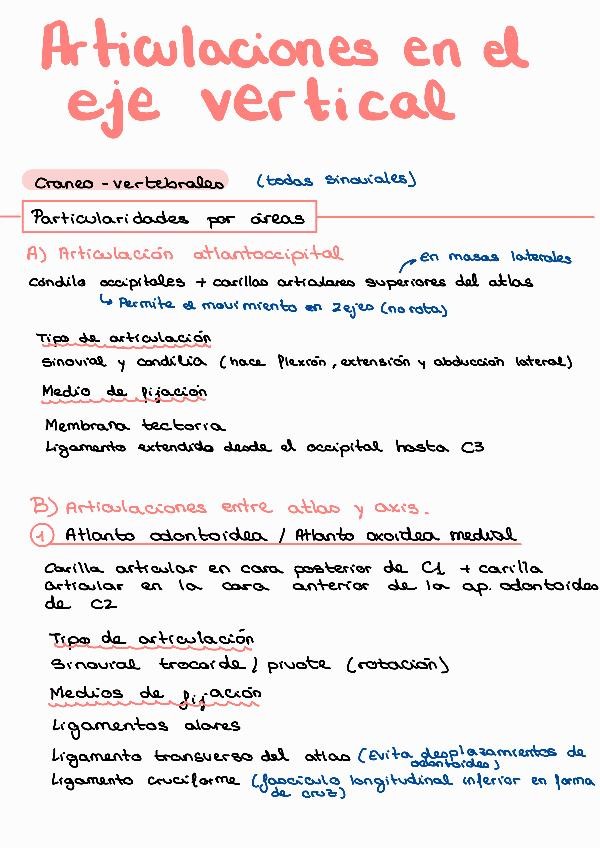 Articulaciones en el
eje vertical
Craneo-vertebrales (todas sinoviales)
Particularidades por áreas
A) Articulación atlantoccipital
en masas laterales
Cóndilo occipitales + carillas articulares superiores del atlas
↳ Permite el movimiento en 2 ejes (no rota)
Tipo de articulación
Sinovial y condilia (hace flexión, extensión y abducción lateral)
Medio de fijación
Membrana tectoria
Ligamento extendido desde el occipital hasta C3
B) Articulaciones entre atlas y axis.
1 Atlanto odontoidea / Atlanto axoidea medial
Carilla articular en cara posterior de C1 + carilla
articular en la cara anterior de la ap. odontoides
de C2
Tipo de articulación
Sinovial trocoide / pivote (rotación)
Medios de fijación
Ligamentos alares
Ligamento transverso del atlas (Evita desplazamientos de
odontoides)
Ligamento cruciforme (fascículo longitudinal inferior en forma
de cruz)